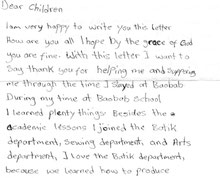 Dear Children
I am very happy to write you this letter
How are you all I hope by the grace of God
you are fine. With this letter I want to
Say thank you for helping me and supporting
me through the time I stayed at Baobab
During my time at Baobab School
I learned plenty things Besides the
academic lessons I joined the Batik
department, sewing department, and Arts
department, I love the Batik department,
because we learned how to produce